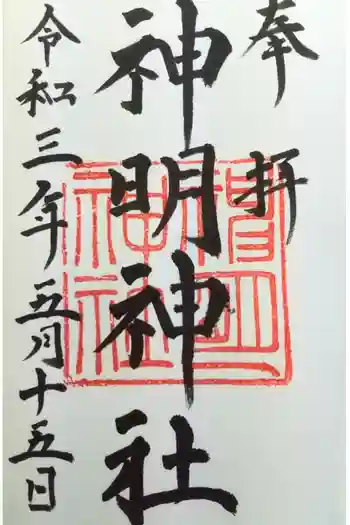 奉拝
神明神社
令和三年五月十五日
神社